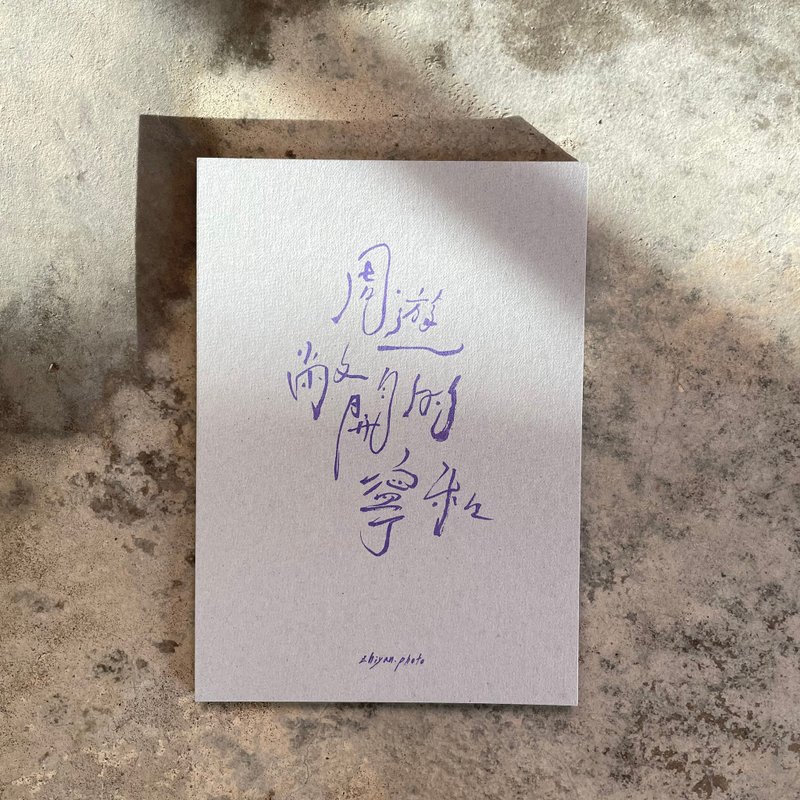 周遊
敞開的
寧和
zhiyan.photo